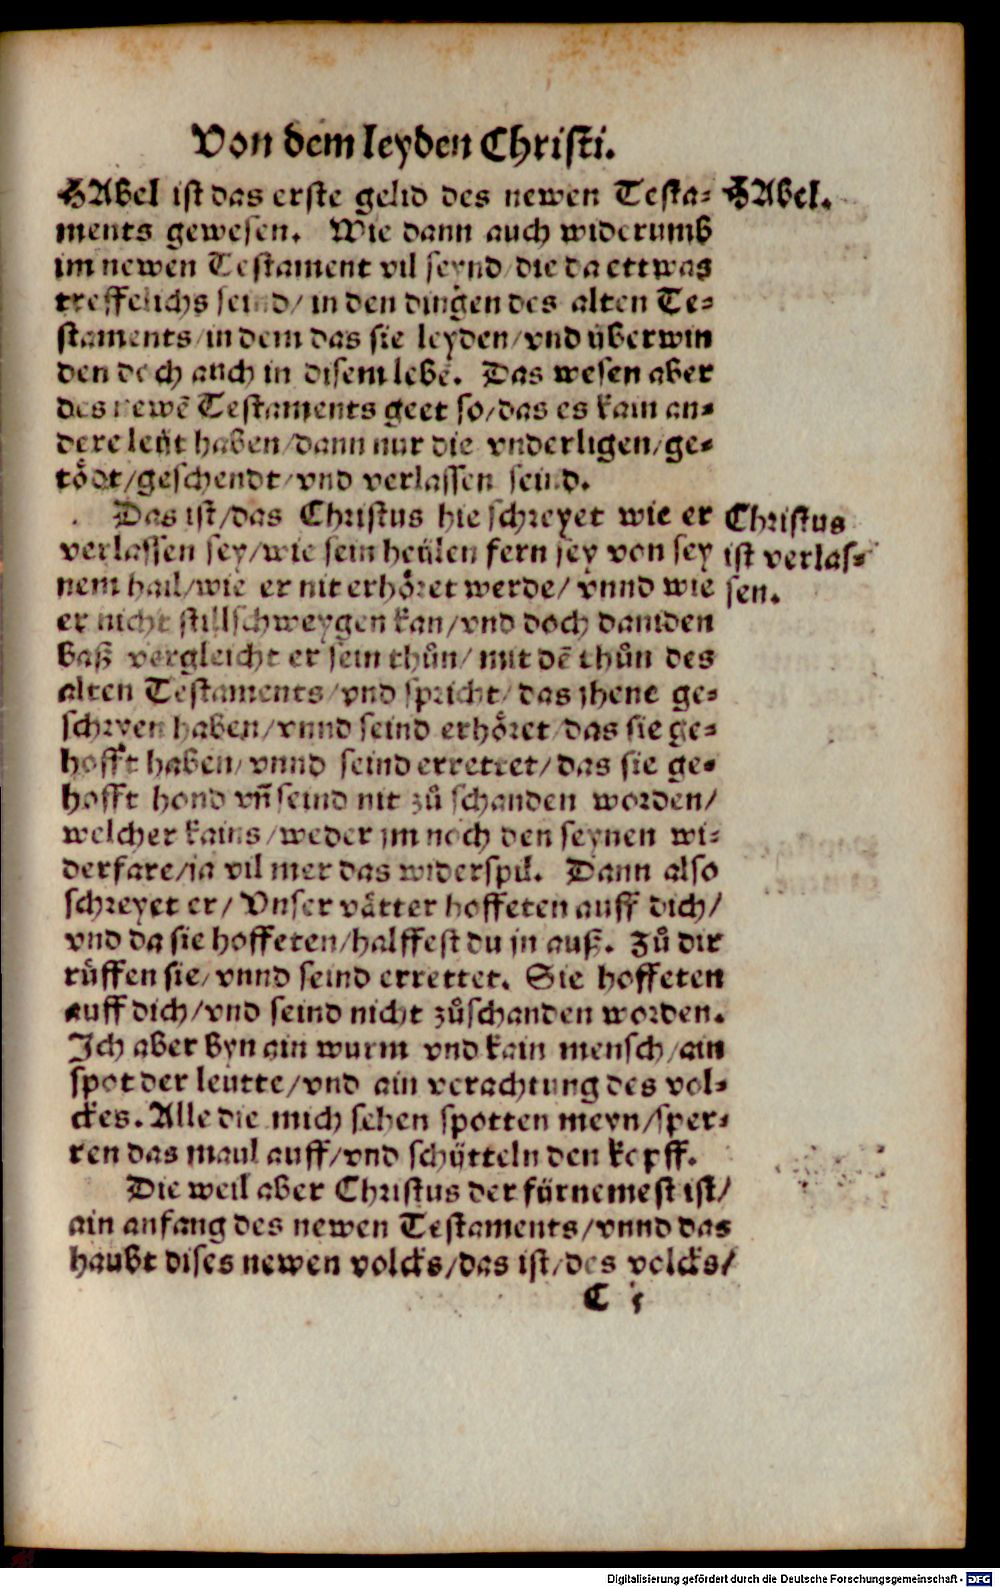 Von dem leyden Christi.
HAbel ist das erste gelid des newen Testa-
HAbel.
ments gewesen. Wie dann auch widerumb
im newen Testament vil seynd/die da ettwas
treffelichs seind/in den dingen des alten Te-
staments/in dem das sie leyden/vnd überwin
den doch auch in disem lebē. Das wesen aber
des newē Testaments geet so/das es kain an-
dere leüt haben/dann nur die vnderligen/ge-
tödt/geschendt/vnd verlassen seind.
Das ist/das Christus hie schreyet wie er
verlassen sey/wie sein heülen fern sey von sey
nem hail/wie er nit erhöret werde/vnnd wie
er nicht stillschweygen kan/vnd doch damden
Christus
ist verlas-
sen.
baß vergleicht er sein thůn/mit dē thůn des
alten Testaments/vnd spricht/das jhene ge-
schryen haben/vnnd seind erhöret/das sie ge-
hofft haben/vnnd seind errettet/das sie ge-
hofft hond vn̄ seind nit zů schanden worden/
welcher kains/weder jm noch den seynen wi-
derfare/ja vil mer das widerspil. Dann also
schreyet er/Vnser vätter hoffeten auff dich/
vnd da sie hoffeten/halffest du jn auß. Zů dir
růffen sie/vnnd seind errettet. Sie hoffeten
auff dich/vnd seind nicht zůschanden worden.
Ich aber byn ain wurm vnd kain mensch/ain
spot der leutte/vnd ain verachtung des vol-
ckes. Alle die mich sehen spotten meyn/sper-
ren das maul auff/vnd schütteln den kopff.
Die weil aber Christus der fürnemest ist/
ain anfang des newen Testaments/vnnd das
haubt dises newen volcks/das ist/des volcks/
C
Digitalisierung gefördert durch die Deutsche Forschungsgemeinschaft - DFG